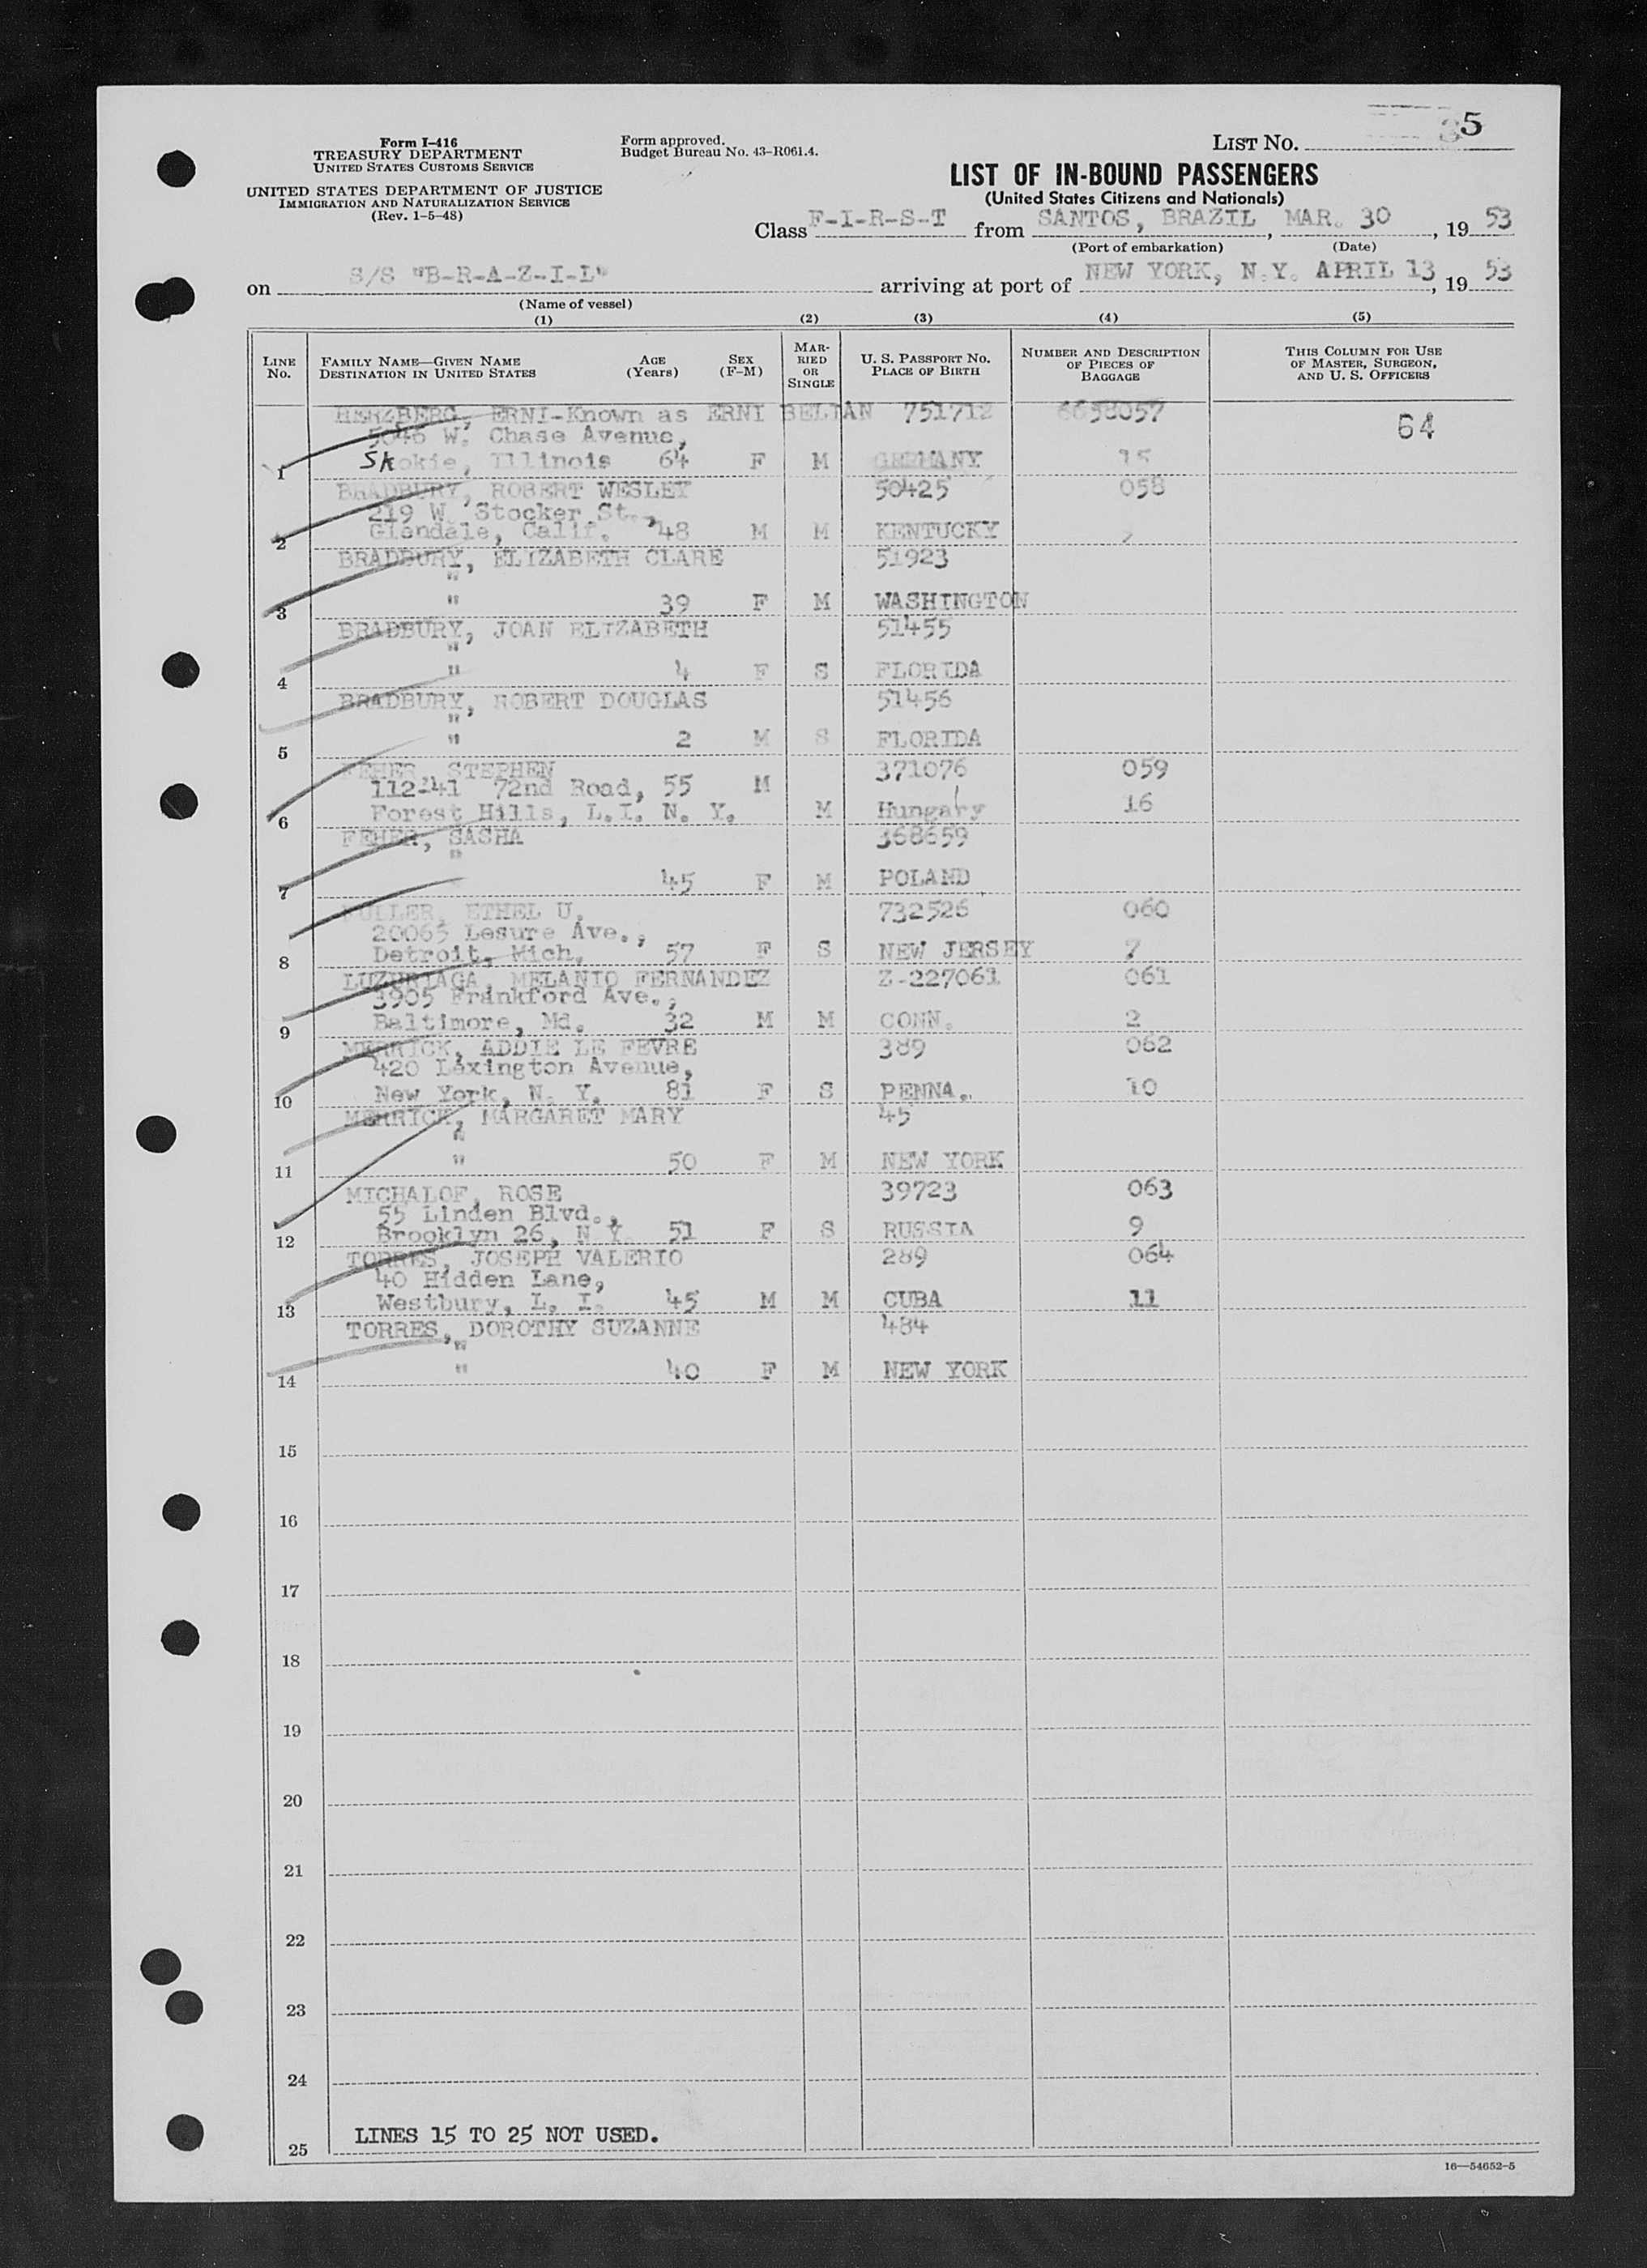 Form I-416
TREASURY DEPARTMENT
UNITED STATES CUSTOMS SERVICE
UNITED STATES DEPARTMENT OF JUSTICE
IMMIGRATION AND NATURALIZATION SERVICE
(Rev. 1-5-48)
Form approved.
Budget Bureau No. 43-R061.4.
LIST NO. 5
LIST OF IN-BOUND PASSENGERS
(United States Citizens and Nationals)
Class F-I-R-S-T from SANTOS, BRAZIL, MAR. 30, 1953
(Port of embarkation) (Date)
on S/S "B-R-A-Z-I-L" arriving at port of NEW YORK, N.Y. APRIL 13, 1953
(Name of vessel)
(1) (2) (3) (4) (5)
LINE NO.
FAMILY NAME—GIVEN NAME
DESTINATION IN UNITED STATES
AGE (Years)
SEX (F-M)
MARRIED OR SINGLE
U. S. PASSPORT NO.
PLACE OF BIRTH
NUMBER AND DESCRIPTION OF PIECES OF BAGGAGE
THIS COLUMN FOR USE OF MASTER, SURGEON, AND U. S. OFFICERS
HERZBERG, ERNI-Known as ERNI BELIAN 751712 6658057 64
5046 W. Chase Avenue,
1 Skokie, Illinois 64 F M GERMANY 15
BRADBURY, ROBERT WESLEY 50425 058
219 W. Stocker St.,
2 Glendale, Calif. 48 M M KENTUCKY
BRADBURY, ELIZABETH CLARE 51923
"
3 " 39 F M WASHINGTON
BRADBURY, JOAN ELIZABETH 51455
"
4 " 4 F S FLORIDA
BRADBURY, ROBERT DOUGLAS 51456
"
5 " 2 M S FLORIDA
FEHER, STEPHEN 371076 059
112-41 72nd Road, 55 M
6 Forest Hills, L.I. N. Y. M Hungary 16
FEHER, SASHA 368659
"
7 45 F M POLAND
FULLER, ETHEL U. 732526 060
20065 Lesure Ave.,
8 Detroit, Mich. 57 F S NEW JERSEY 7
LUZURIAGA, MELANIO FERNANDEZ Z-227061 061
3905 Frankford Ave.,
9 Baltimore, Md. 32 M M CONN. 2
MERRICK, ADDIE LE FEVRE 389 062
420 Lexington Avenue,
10 New York, N. Y. 81 F S PENNA. 10
MERRICK, MARGARET MARY 45
"
11 " 50 F M NEW YORK
MICHALOF, ROSE 39723 063
55 Linden Blvd.,
12 Brooklyn 26, N Y. 51 F S RUSSIA 9
TORRES, JOSEPH VALERIO 289 064
40 Hidden Lane,
13 Westbury, L. I. 45 M M CUBA 11
TORRES, DOROTHY SUZANNE 484
"
14 " 40 F M NEW YORK
15
16
17
18
19
20
21
22
23
24
25 LINES 15 TO 25 NOT USED.
16—54652-5